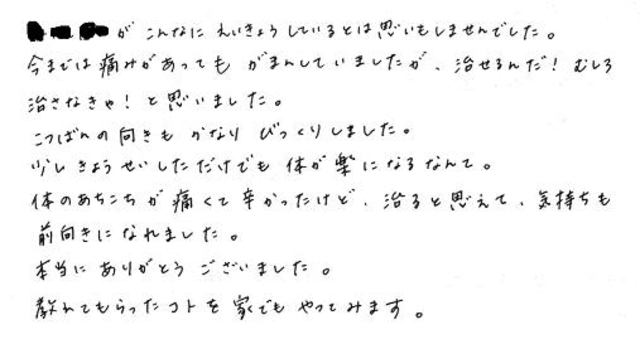 がこんなにえいきょうしているとは思いもしませんでした。
今までは痛みがあってもがまんしていましたが、治せるんだ！むしろ
治さなきゃ！と思いました。
こつばんの向きもかなりびっくりしました。
少しきょうせいしただけでも体が楽になるなんて。
体のあちこちが痛くて辛かったけど、治ると思えて、気持ちも
前向きになれました。
本当にありがとうございました。
教えてもらったコトを家でもやってみます。